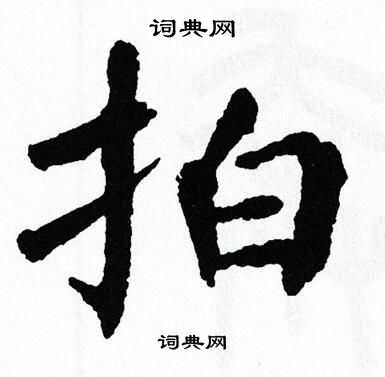 词典网
拍
词典网